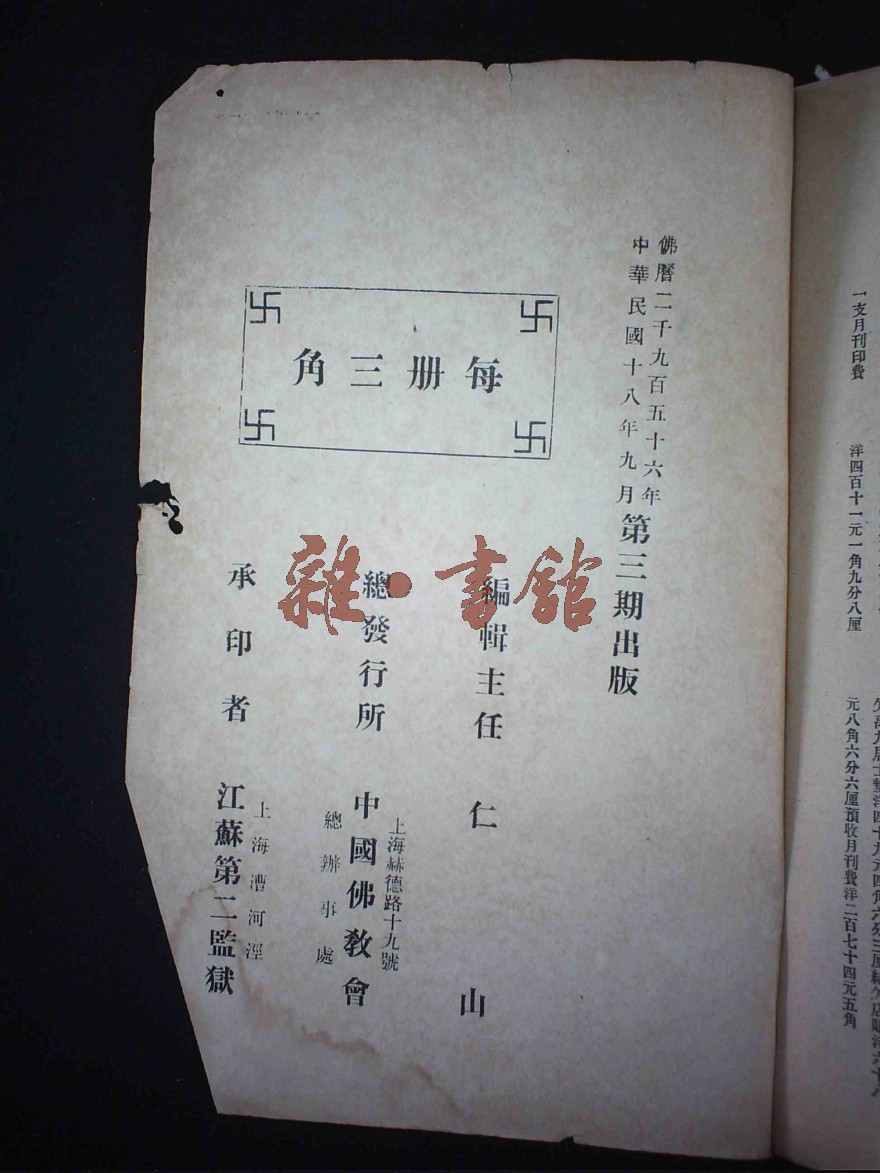 一支月刊印費
洋四百十一元一角九分八厘
元八角六分六厘預收月刊費洋二百七十四元五角
佛曆二千九百五十六年
中華民國十八年九月
第三期出版
每册三角
卐
卐
卐
卐
編輯主任 仁 山
總發行所
上海赫德路十九號
中國佛教會
總辦事處
承印者
上海漕河涇
江蘇第二監獄
雜·書館